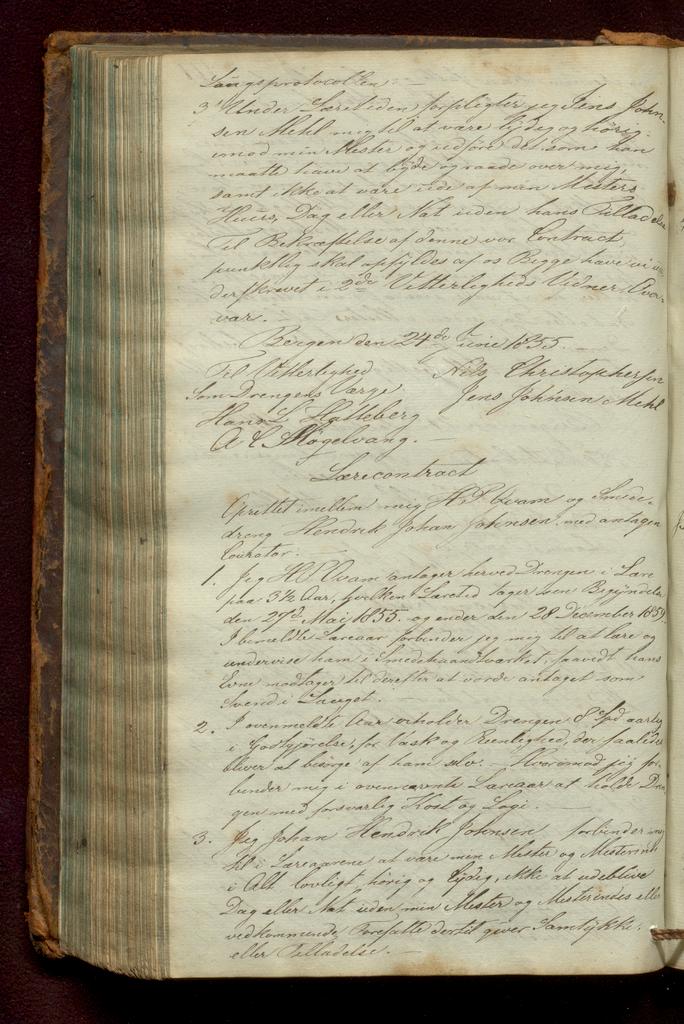 Laugsprotocollen. —
3' Under Læretiden forpligter jeg Jens John-
sen Mehl mig til at være lydig og hørig
imod min Mester og udføre det som han
maatte have at byde og raade over mig,
samt ikke at være ude af min Mesters
Huus, Dag eller Nat uden hans Tilladelse
Til Bekræftelse af denne vor Contract,
punktlig skal opfyldes af os Begge have vi un-
derskrevet i 2de Vitterligheds Vidner Over-
vær.
Bergen den 24de Junie 1855. —
Til Vitterlighed Nils Christophersen
Som Drengens Værge Jens Johnsen Mehl
Hans L Hatleberg
A C Mögelvang. —
Lærecontract
Oprettet imellem mig H. P. Qvam og Smede-
dreng Hendrik Johan Johnsen med antagen
Curator. —
1. Jeg H. P. Qvam antager herved Drengen i Lære
paa 3½ Aar, hvilken Læretid tager sin Begyndelse
den 27de Mai 1855. og ender den 28 December 1858.
I bemeldte Læreaar forbinder jeg mig til at lære og
undervise ham i Smedehaandværket, saavidt hans
Evne modtager til derefter at vorde antaget som
Svend i Lauget.
2. I ovenmeldte Aar erholder Drengen 8 Spd aarlig
i Godtgjørelse, for Vask og Reenlighed, der saaledes
bliver at besørge af ham selv. — Hvorimod jeg for-
binder mig i ovennævnte Læreaar at holde Dren-
gen med forsvarlig Kost og Logi. —
3. Jeg Johan Hendrik Johnsen forbinder mig
til i Læreaarene at være min Mester og Mesterinde
i Alt lovligt hørig og lydig, ikke at udeblive
Dag eller Nat uden min Mester og Mesterindes eller
vedkommende Foresatte dertil giver Samtykke
eller Tilladelse. —